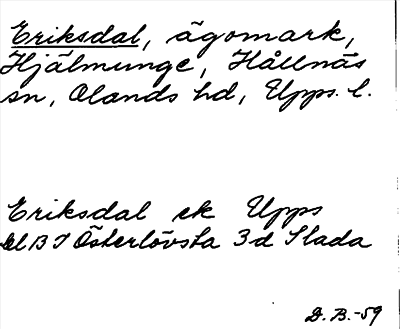 Eriksdal, ägomark,
Hjälmunge, Hållnäs
sn, Olands hd, Upps. l.
Eriksdal ek Upps
bl 13 I Österlövsta 3d Slada
D. B. -59